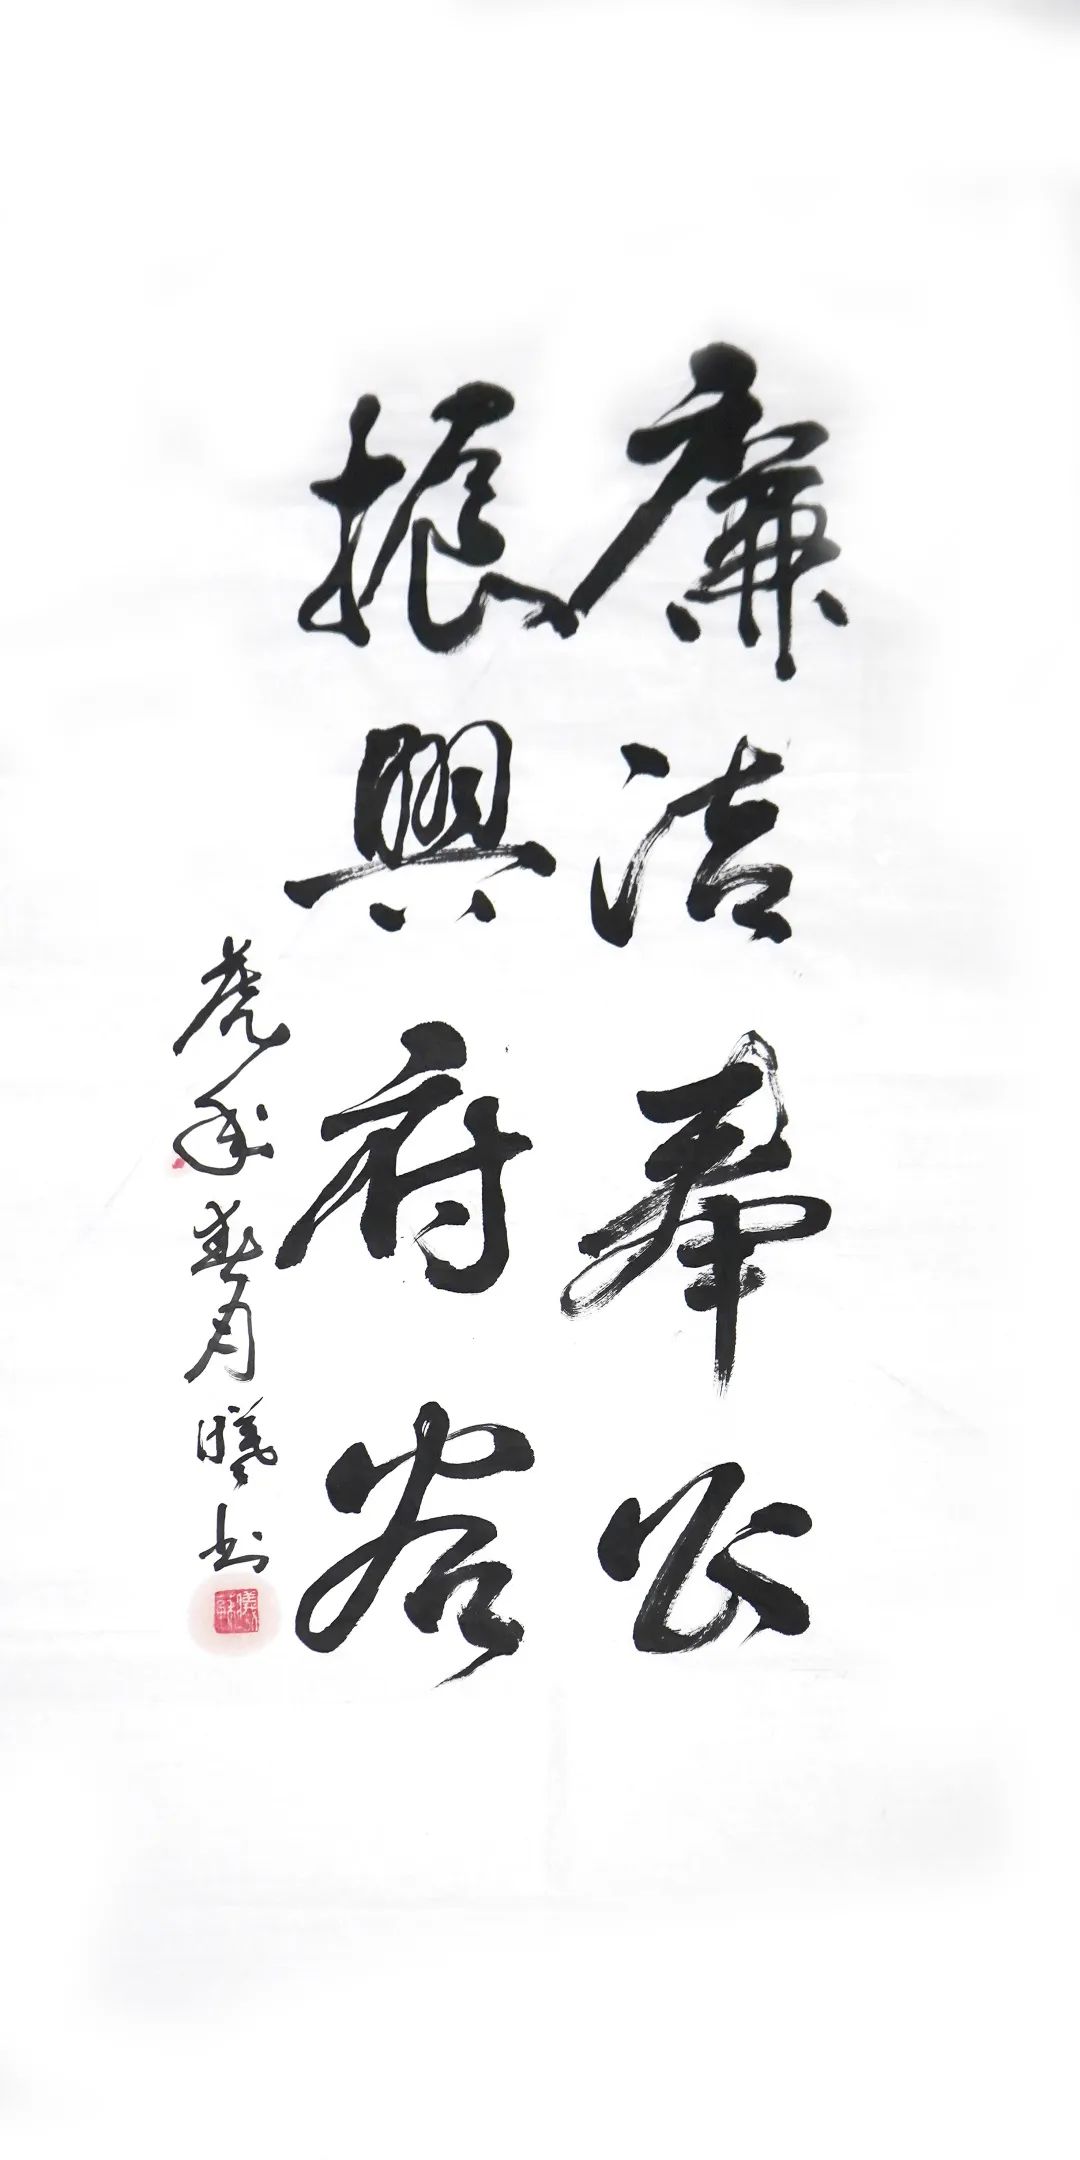 廉洁奉公
振興府谷
虎年春月曦书